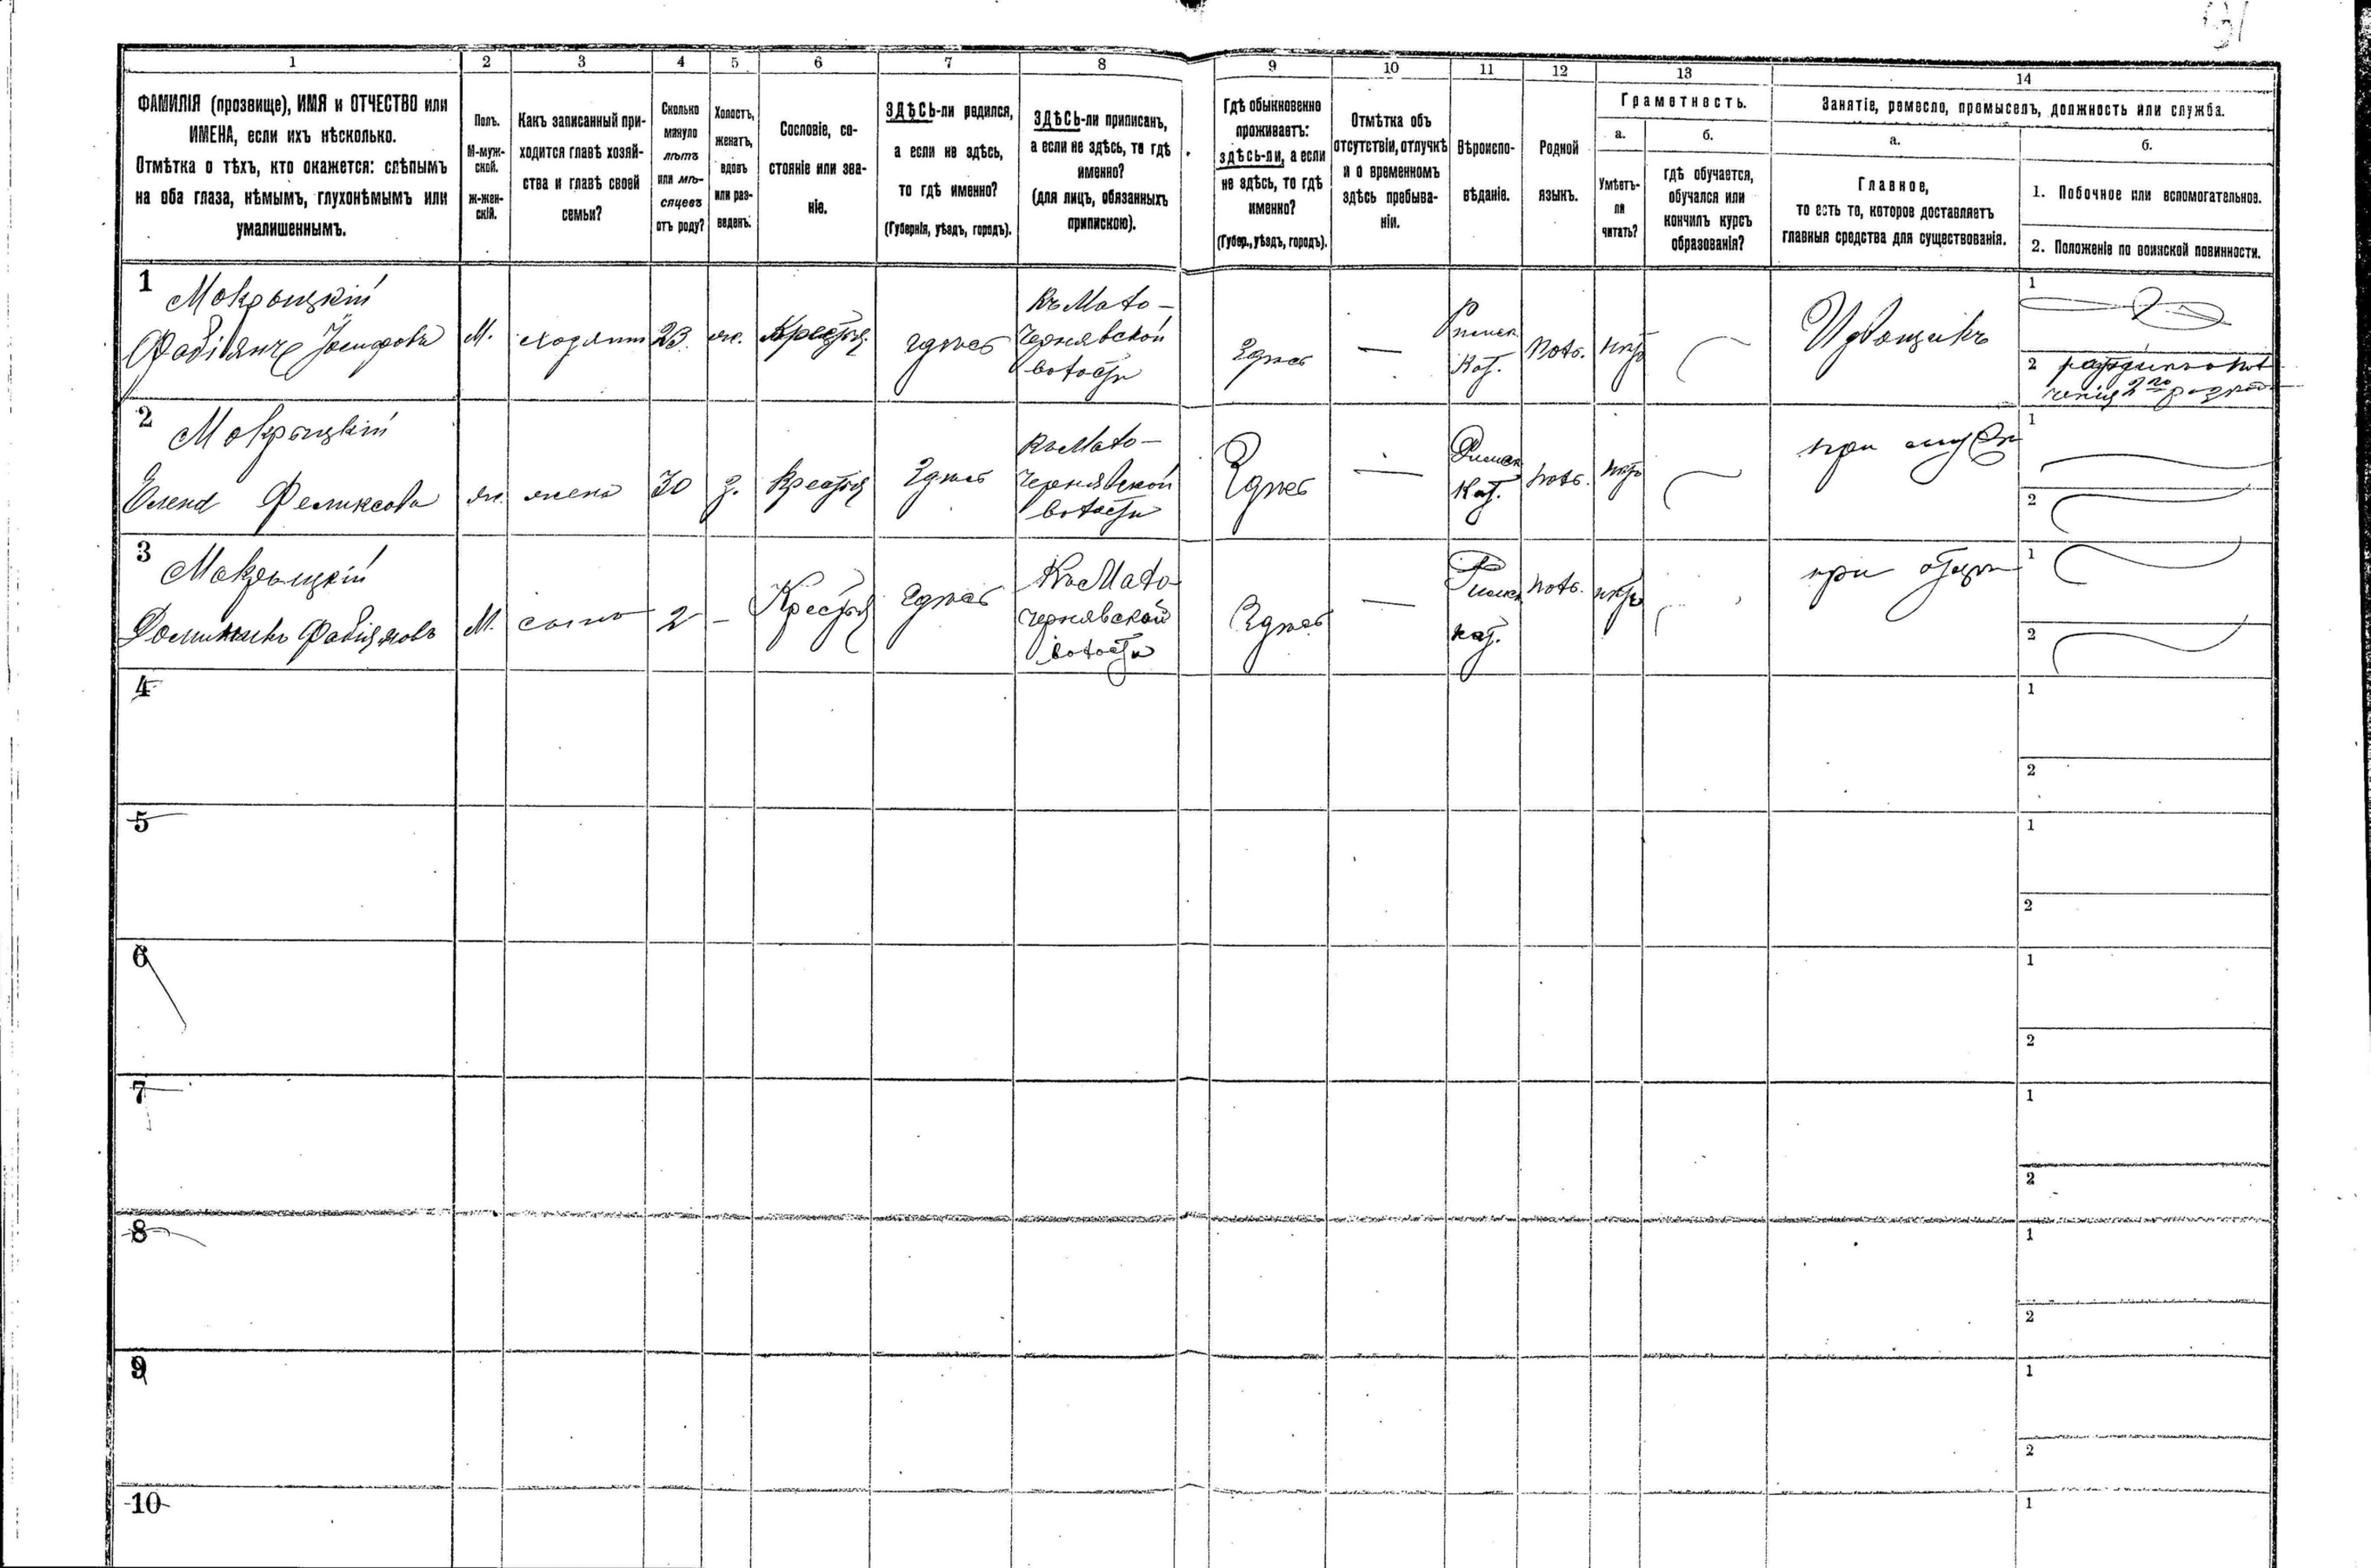 1 2 3 4 5 6 7 8 9 10 11 12 13 14
ФАМИЛІЯ (прозвище), ИМЯ и ОТЧЕСТВО или
ИМЕНА, если ихъ нѣсколько.
Отмѣтка о тѣхъ, кто окажется: слѣпымъ
на оба глаза, нѣмымъ, глухонѣмымъ или
умалишеннымъ.
Полъ.
М-муж-
ской.
ж-жен-
скій.
Какъ записанный при-
ходится главѣ хозяй-
ства и главѣ своей
семьи?
Сколько
минуло
лѣтъ
или мѣ-
сяцевъ
отъ роду?
Холостъ,
женатъ,
вдовъ
или раз-
веденъ.
Сословіе, со-
стояніе или зва-
ніе.
ЗДѢСЬ-ли родился,
а если не здѣсь,
то гдѣ именно?
(Губернія, уѣздъ, городъ).
ЗДѢСЬ-ли приписанъ,
а если не здѣсь, то гдѣ
именно?
(для лицъ, обязанныхъ
припискою).
Гдѣ обыкновенно
проживаетъ:
здѣсь-ли, а если
не здѣсь, то гдѣ
именно?
(Губер., уѣздъ, городъ).
Отмѣтка объ
отсутствіи, отлучкѣ
и о временномъ
здѣсь пребыва-
ніи.
Вѣроиспо-
вѣданіе.
Родной
языкъ.
Грамотность.
а.
Умѣетъ-
ли
читать?
б.
гдѣ обучается,
обучался или
кончилъ курсъ
образованія?
Занятіе, ремесло, промыселъ, должность или служба.
а.
Главное,
то есть то, которое доставляетъ
главныя средства для существованія.
б.
1. Побочное или вспомогательное.
2. Положеніе по воинской повинности.
1
Мокрыцкій
Фабіянъ Іосифовъ
М.
хозяинъ
23
ж.
Крестья
здѣсь
Къ Мало-
Чернявской
волости
Здѣсь
—
Римск
Кат.
Пол.
нѣтъ
Извощикъ
1
2
2
Мокрыцкій
Елена Феликсова
ж.
жена
30
з.
Крестья
Здѣсь
Къ Мало-
Чернявской
волости
Здѣсь
—
Римск
Кат.
Пол.
нѣтъ
при мужѣ
1
2
3
Мокрыцкій
Доминикъ Фабіяновъ
М.
сынъ
2
—
Крестья
Здѣсь
Къ Мало-
Чернявской
волости
Здѣсь
—
Римск
Кат.
Пол.
нѣтъ
при отцѣ
1
2
4
1
2
5
1
2
6
1
2
7
1
2
8
1
2
9
1
2
10
1